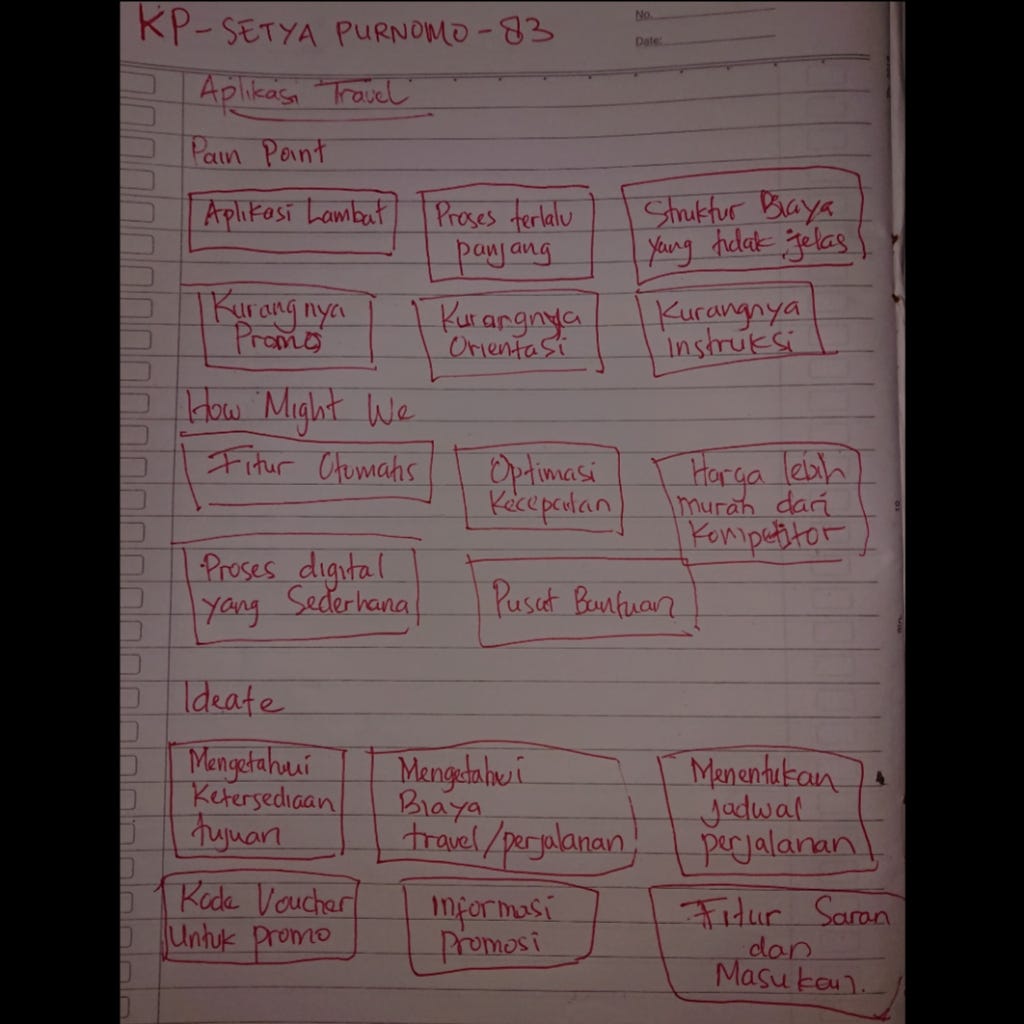 KP-SETYA PURNOMO-83
No.
Date:
Aplikasi Travel
Pain Point
Aplikasi Lambat
Proses terlalu
panjang
Struktur Biaya
yang tidak jelas
Kurangnya
Promo
Kurangnya
Orientasi
Kurangnya
instruksi
How Might We
Fitur Otomatis
Optimasi
Kecepatan
Harga lebih
murah dari
Kompetitor
Proses digital
yang Sederhana
Pusat Bantuan
Ideate
Mengetahui
Ketersediaan
tujuan
Mengetahui
Biaya
travel/perjalanan
Menentukan
jadwal
perjalanan
Kode Voucher
Untuk promo
Informasi
Promosi
Fitur Saran
dan
Masukan.